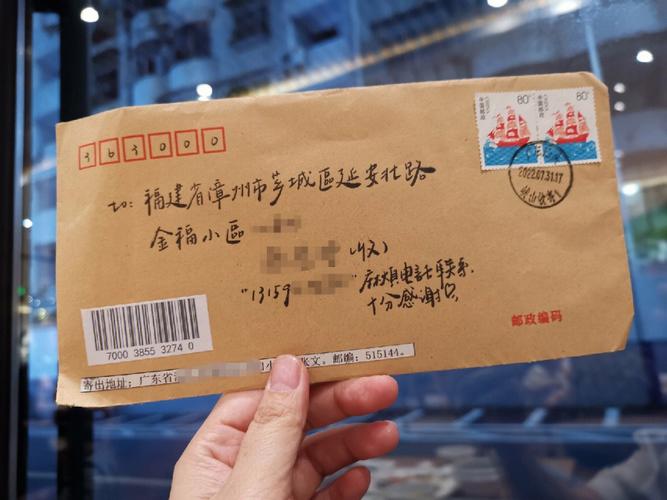 363000
中国邮政 80分
中国邮政 80分
2022.07.31.17
to: 福建省漳州市芗城區延安北路
金福小區
(收)
"13159 麻烦電話联系.
十分感謝♡.
邮政编码
7000 3855 3274 0
寄出地址:广东省 张文。邮编:515144。